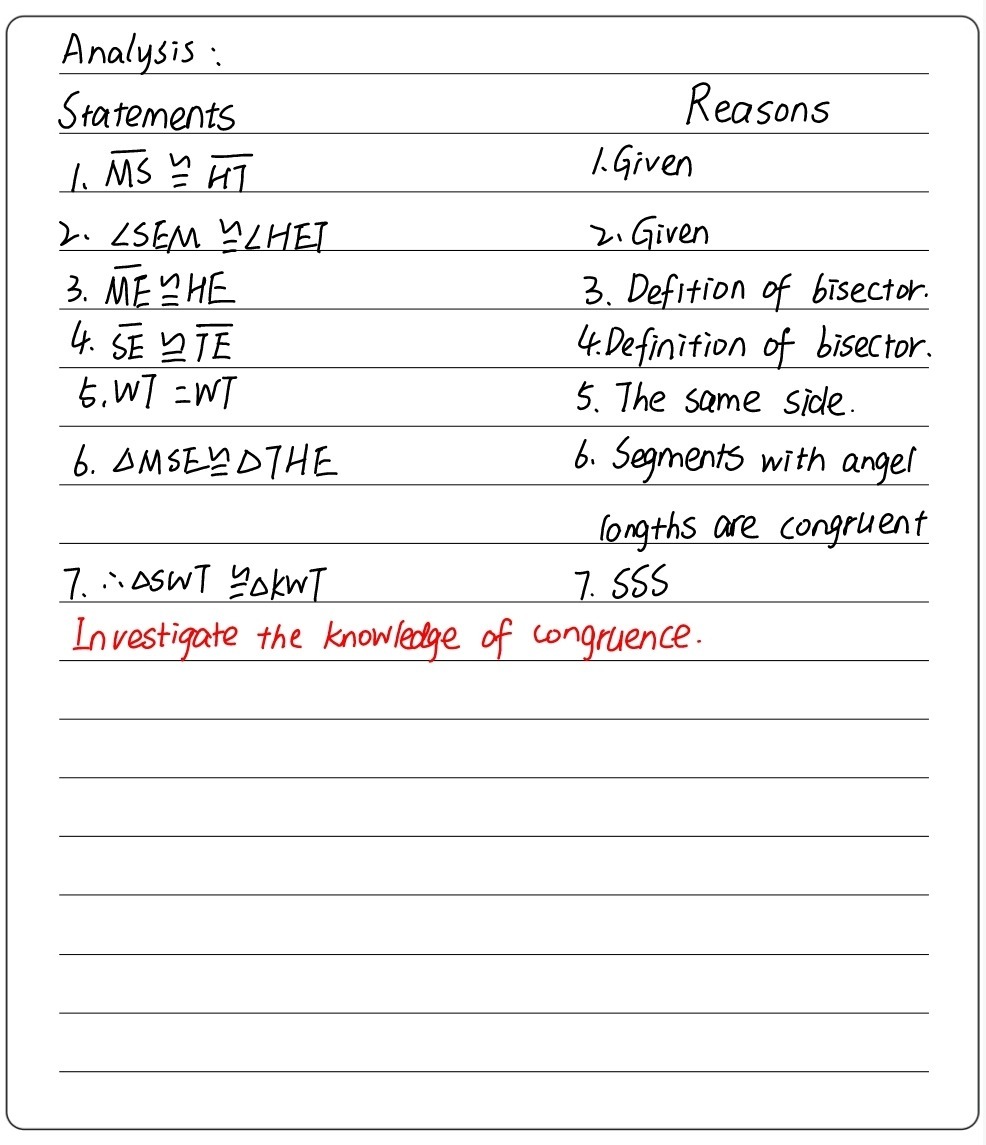 Analysis:
Statements Reasons
1. M̅S̅ ≅ H̅T̅ 1. Given
2. ∠SEM ≅ ∠HET 2. Given
3. M̅E̅ ≅ HE 3. Defition of bisector.
4. S̅E̅ ≅ T̅E̅ 4. Definition of bisector.
5. WT = WT 5. The same side.
6. △MSE ≅ △THE 6. Segments with angel
longths are congruent
7. ∴ △SWT ≅ △KWT 7. SSS
Investigate the knowledge of congruence.